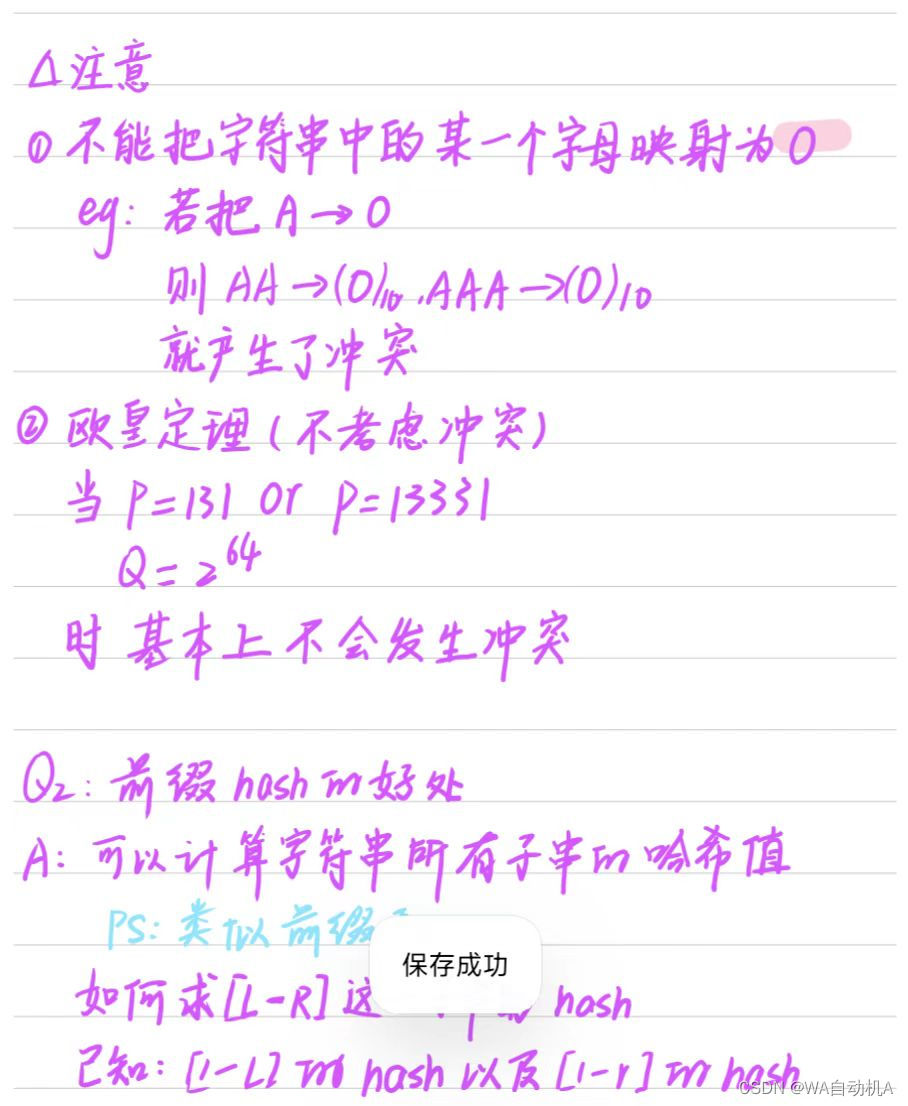 △注意
① 不能把字符串中的某一个字母映射为0
eg: 若把 A→0
则 AA→(0)10. AAA→(0)10
就产生了冲突
② 欧皇定理(不考虑冲突)
当 P=131 or P=13331
Q=2^64
时 基本上不会发生冲突
Q2: 前缀hash的好处
A: 可以计算字符串所有子串的哈希值
PS: 类似前缀
保存成功
如何求[L-R]这 hash
已知: [1-L]的hash以及[1-r]的hash
CSDN @WA自动机A